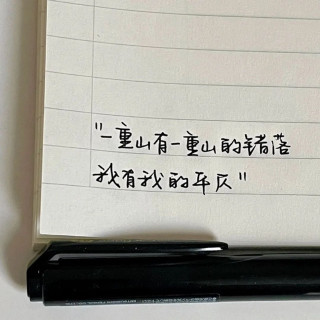 "一重山有一重山的错落
我有我的平仄"